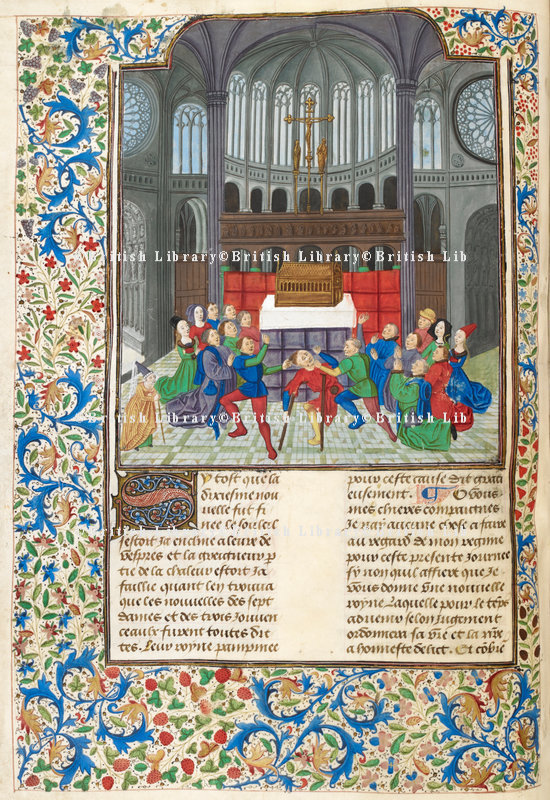 British Library©British Library©British Lib
ish Library©British Library©British Lib
British Library©British Library©British Lib
British Library©British Lib
Sy tost que la
dixiesme nou
uelle fut fi
nee le soleil
sestoit Ja enclin a leure de
vespres et la greigneur p
tie de la chaleur estoit Ja
faillie quant len trouua
que les nouuelles des sept
dames et des trois Jouuen
ceaulx furent toutes di
tes. Leur royne pampinee
pour ceste cause dit graci
eusement. O vous
mes chieres compaignes
Je nay aucune chose a faire
au regard de mon regime
pour ceste presente Journee
sy non quil affiert que Je
vous donne vne nouuelle
royne Laquelle pour le teps
aduenir selon Jugement
ordonnera sa vie et la nre
a honneste delict. Et cobie